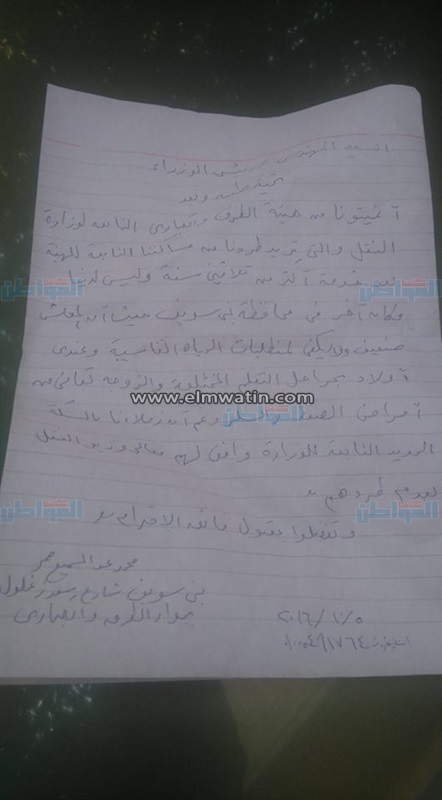 السيد المهندس رئيس الوزراء
تحية طيبة وبعد
أغيثونا من هيئة الطرق والكباري التابعة لوزارة
النقل والتي تريد طردنا من مساكننا التابعة للهيئة
بعد خدمة أكثر من ثلاثين سنة وليس لدينا
مكان آخر في محافظة بني سويف حيث أن المعاش
ضعيف ولا يكفي لمتطلبات الحياة القاسية وعندي
أولاد بمراحل التعليم المختلفة والزوجة تعاني من
أمراض الضغط والسكر رغم أن زملاءنا بالسكة
الحديد التابعة للوزارة وافق لهم معالي وزير النقل
بعدم طردهم
وتفضلوا بقبول فائق الاحترام
محمد عبد السميع
بني سويف شارع سعد زغلول
بجوار الطرق والكباري
٢٠١٦/١٠/٥
www.elmwatin.com
المواطن